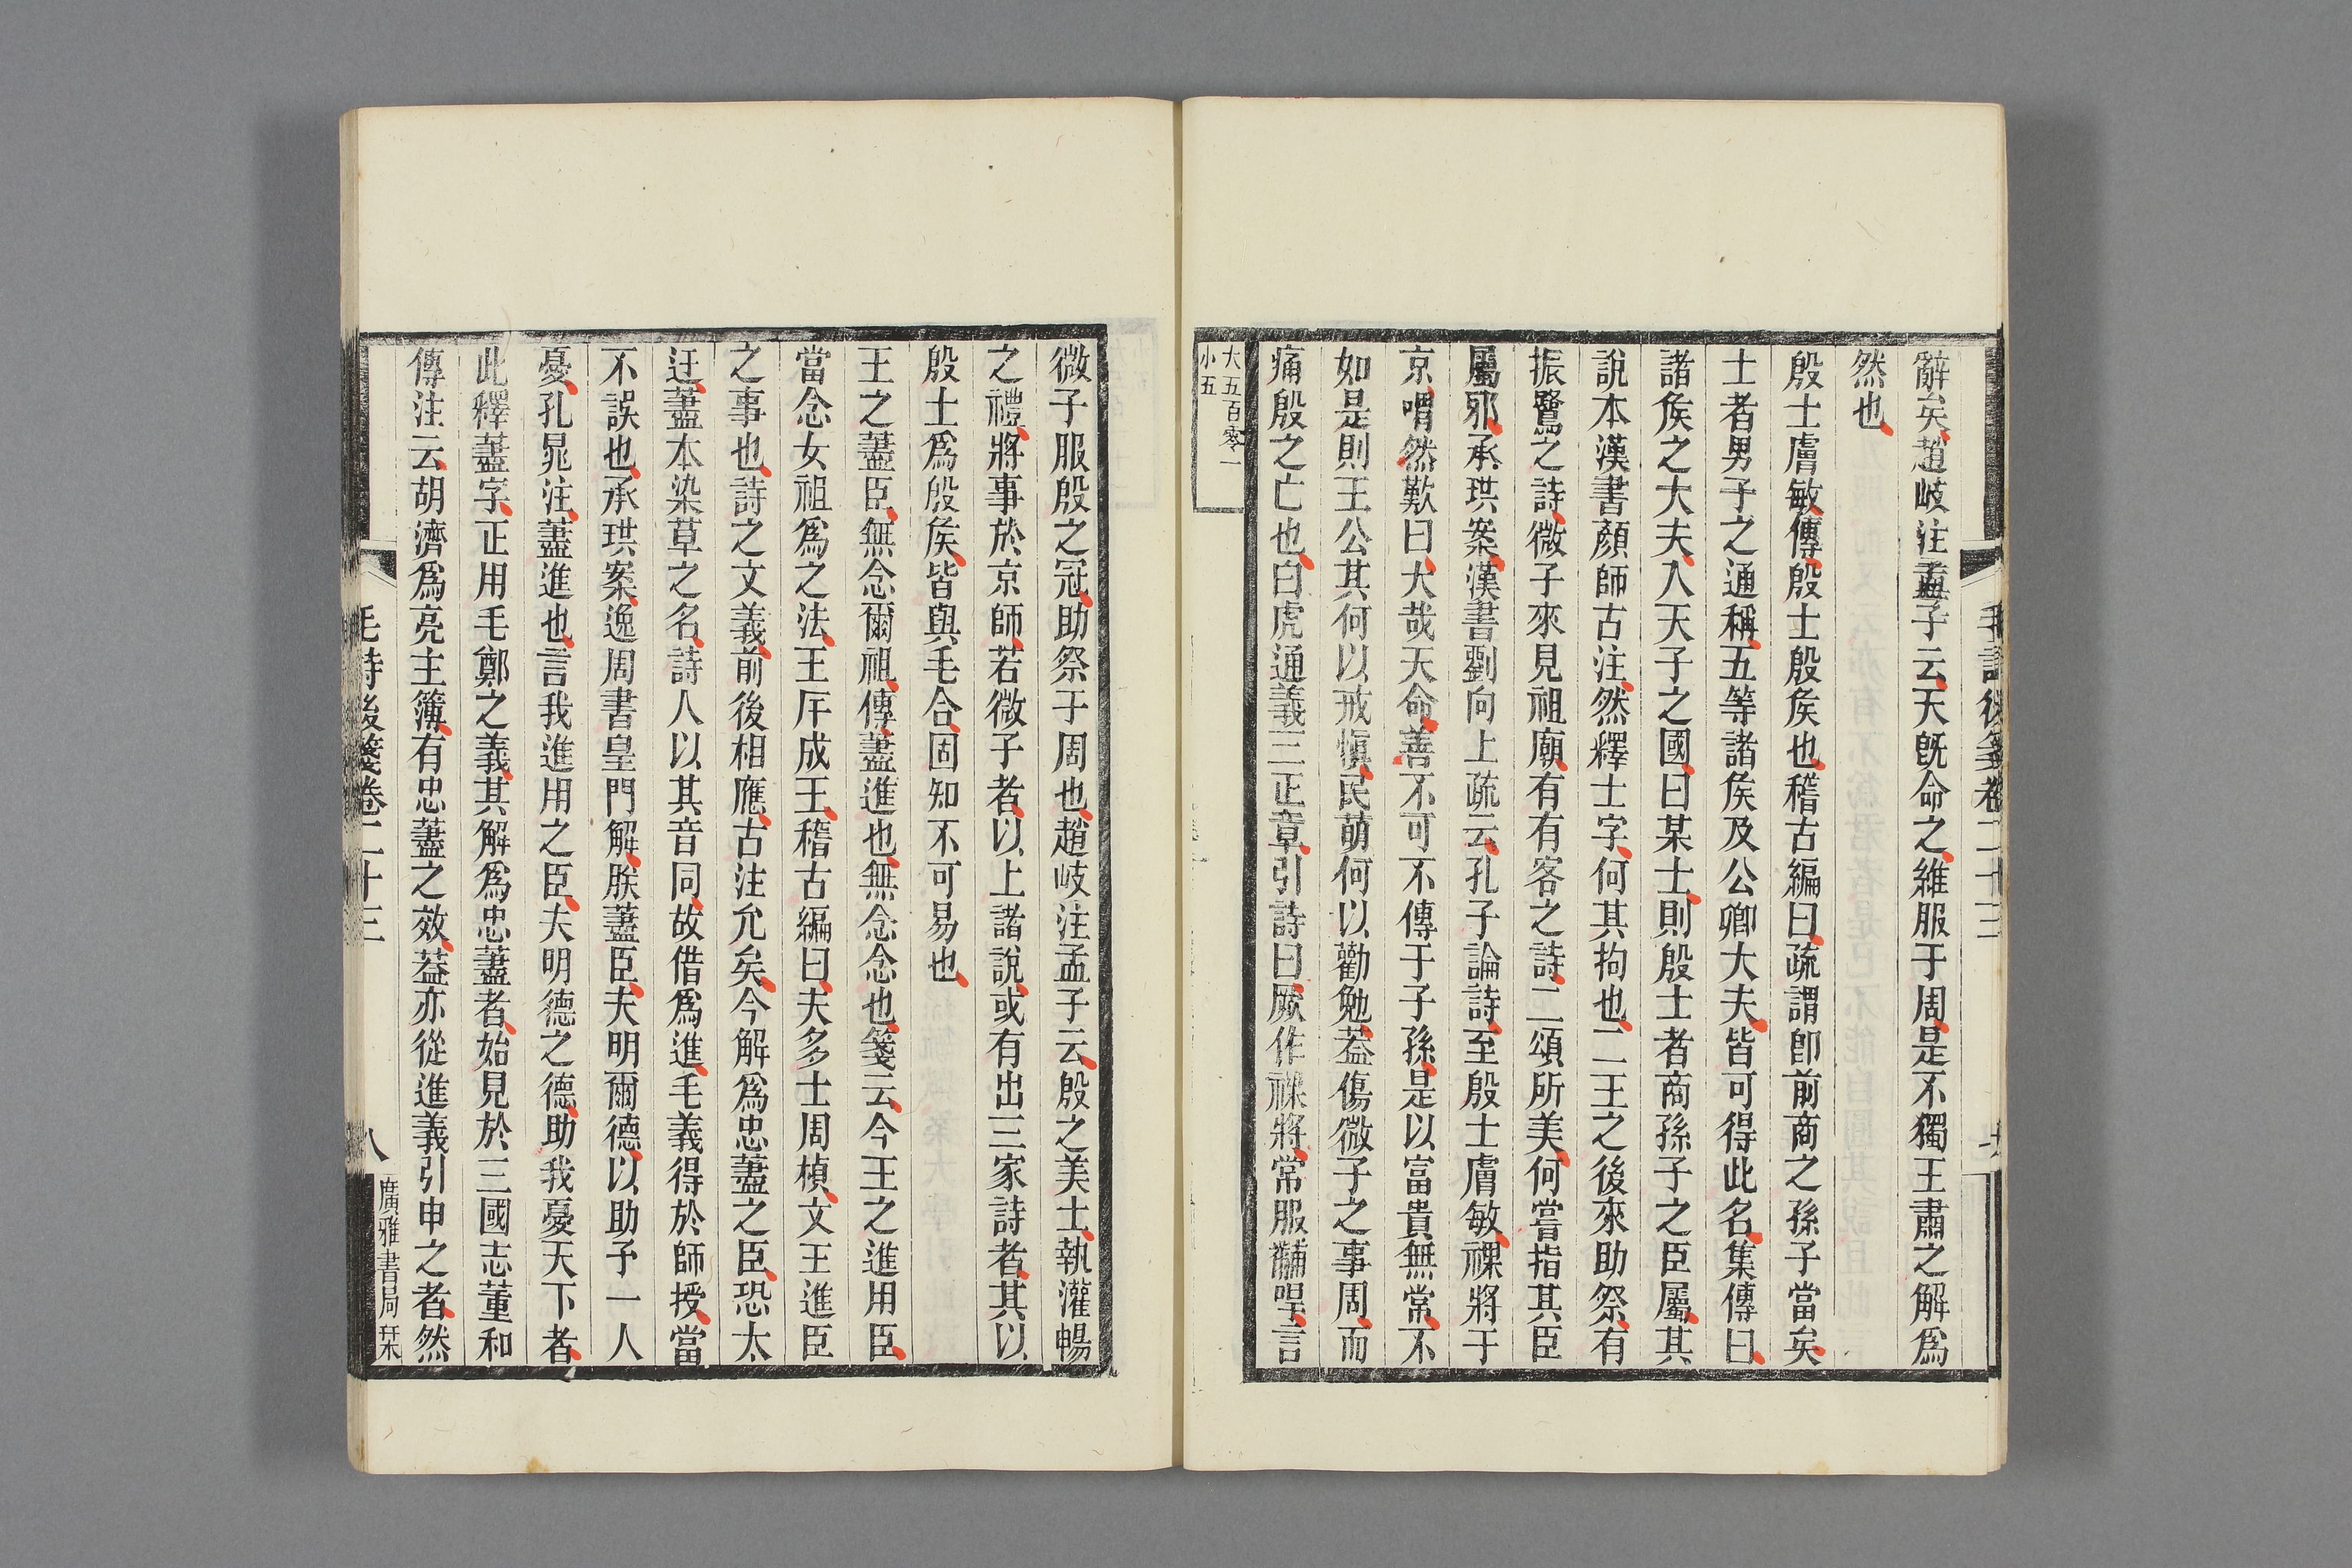 辭矣趙岐注孟子云天旣命之維服于周是不獨王肅之解爲
然也
殷士膚敏傳殷士殷矦也稽古編曰疏謂卽前商之孫子當矣
士者男子之通稱五等諸矦及公卿大夫皆可得此名集傳曰
諸矦之大夫入天子之國曰某士則殷士者商孫子之臣屬其
說本漢書顏師古注然釋士字何其拘也二王之後來助祭有
振鷺之詩微子來見祖廟有有客之詩二頌所美何嘗指其臣
屬邪承珙案漢書劉向上疏云孔子論詩至殷士膚敏祼將于
京喟然歎曰大哉天命善不可不傳于子孫是以富貴無常不
如是則王公其何以戒愼民萌何以勸勉葢傷微子之事周而
痛殷之亡也白虎通義三正章引詩曰厥作祼將常服黼冔言
大五百零一
小五
微子服殷之冠助祭于周也趙岐注孟子云殷之美士執灌暢
之禮將事於京師若微子者以上諸說或有出三家詩者其以
殷士爲殷矦皆與毛合固知不可易也
王之藎臣無念爾祖傳藎進也無念念也箋云今王之進用臣
當念女祖爲之法王斥成王稽古編曰夫多士周楨文王進臣
之事也詩之文義前後相應古注允矣今解爲忠藎之臣恐太
迂藎本染草之名詩人以其音同故借爲進毛義得於師授當
不誤也承珙案逸周書皇門解朕藎臣夫明爾德以助予一人
憂孔晁注藎進也言我進用之臣夫明德之德助我憂天下者
此釋藎字正用毛鄭之義其解爲忠藎者始見於三國志董和
傳注云胡濟爲亮主簿有忠藎之效葢亦從進義引申之者然
毛詩後箋卷二十三
八
廣雅書局栞